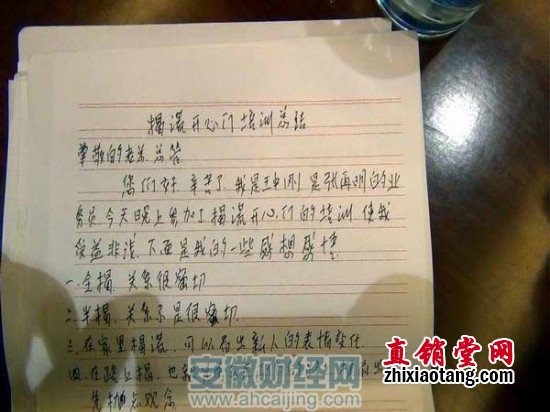 揭谎开心门培训总结
尊敬的老总 总答
您们好 辛苦了 我是王刚 是张再明的业
务员今天晚上参加了揭谎开心门的培训 使我
受益非浅 下面是我的一些感想感情
一.全揭.关系很密切
二.半揭.关系不是很密切
三.在家里揭谎.可以看出新人的表情变化
四.在路上揭.也
先抽点观念
直销堂网
zhixiaotang.com
安徽财经网
www.ahcaijing.com